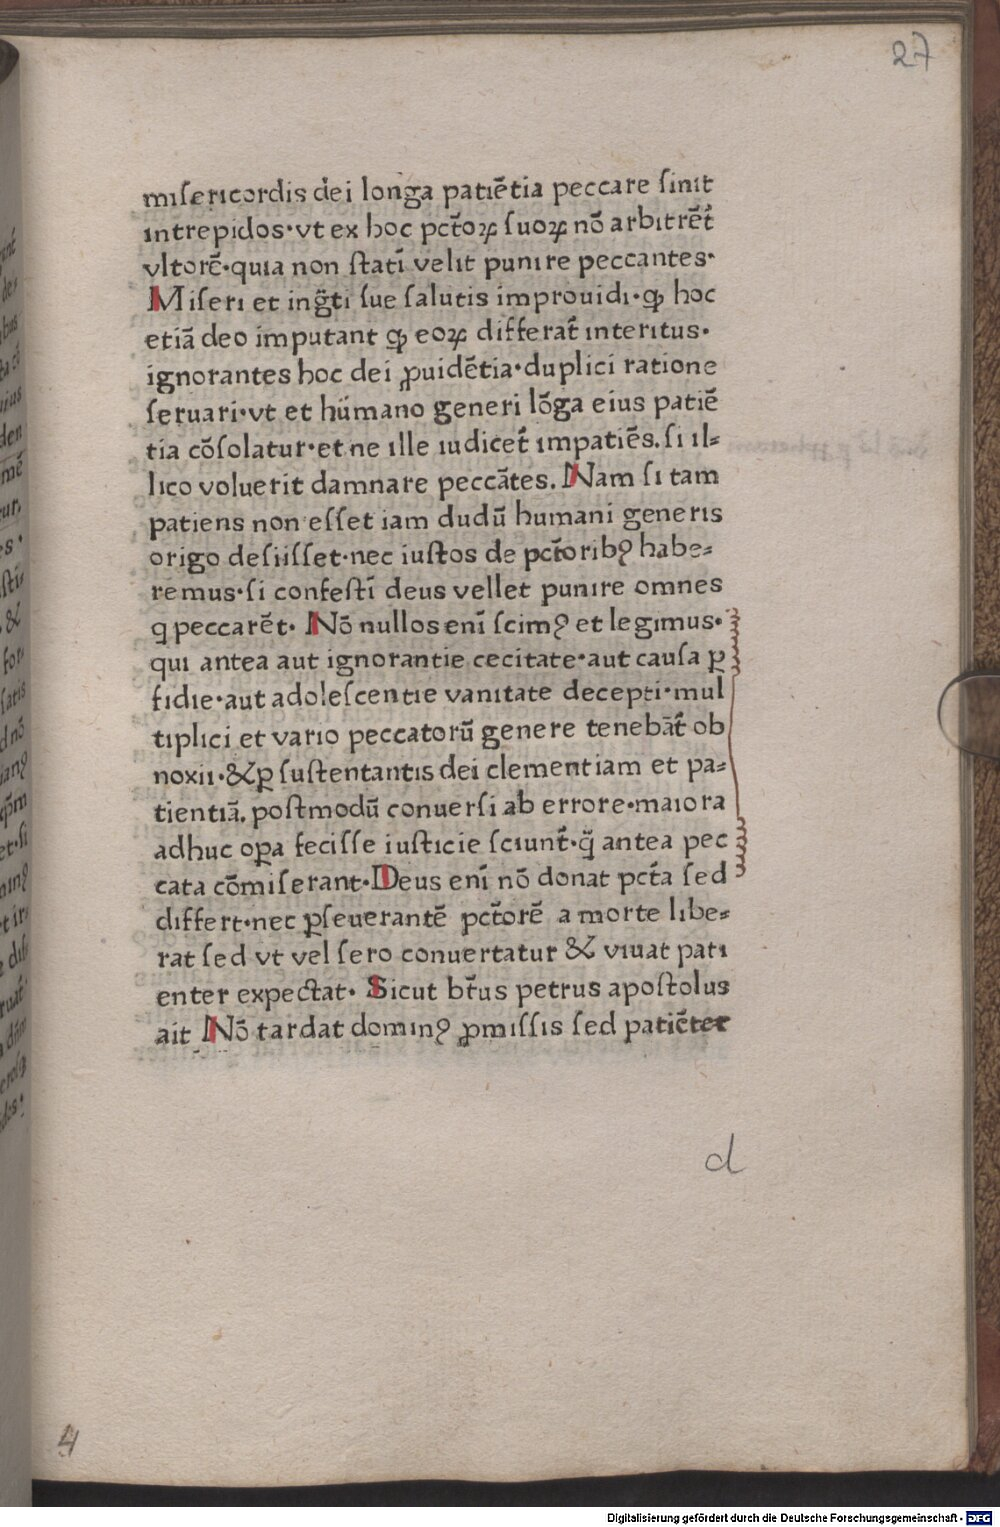 27
miſericordis dei longa patiētia peccare ſinit
intrepidos·vt ex hoc pct̄oꝝ ſuoꝝ nō arbitrēt᷑
vltorē·quia non ſtatī velit punire peccantes·
Miſeri et ing̃ti ſue ſalutis improuidi·ꝙ hoc
etiā deo imputant ꝙ eoꝝ differat᷑ interitus·
ignorantes hoc dei ꝓuidētia·duplici ratione
ſeruari·vt et humano generi lōga eius patiē
tia cōſolatur·et ne ille iudicet᷑ impatiēs. ſi il⸗
lico voluerit damnare peccātes. Nam ſi tam
patiens non eſſet iam dudū humani generis
origo deſiiſſet·nec iuſtos de pct̄oribꝰ habe⸗
remus·ſi confeſtī deus vellet punire omnes
q peccarēt· Nō nullos enī ſcimꝰ et legimus·
qui antea aut ignorantie cecitate·aut cauſa ꝑ
fidie·aut adoleſcentie vanitate decepti·mul
tiplici et vario peccatorū genere tenebāt᷑ ob
noxii·&ꝑ ſuſtentantis dei clementiam et pa⸗
tientiā. poſtmodū conuerſi ab errore·maiora
adhuc oꝑa feciſſe iuſticie ſciunt᷑·q̄ antea pec
cata cōmiſerant·Deus enī nō donat pct̄a ſed
differt·nec ꝑſeuerantē pct̄orē a morte libe⸗
rat ſed vt vel ſero conuertatur & viuat pati
enter expectat· Sicut bt̄us petrus apoſtolus
ait Nō tardat dominꝰ ꝓmiſſis ſed patiēter
d
4
Digitalisierung gefördert durch die Deutsche Forschungsgemeinschaft - DFG